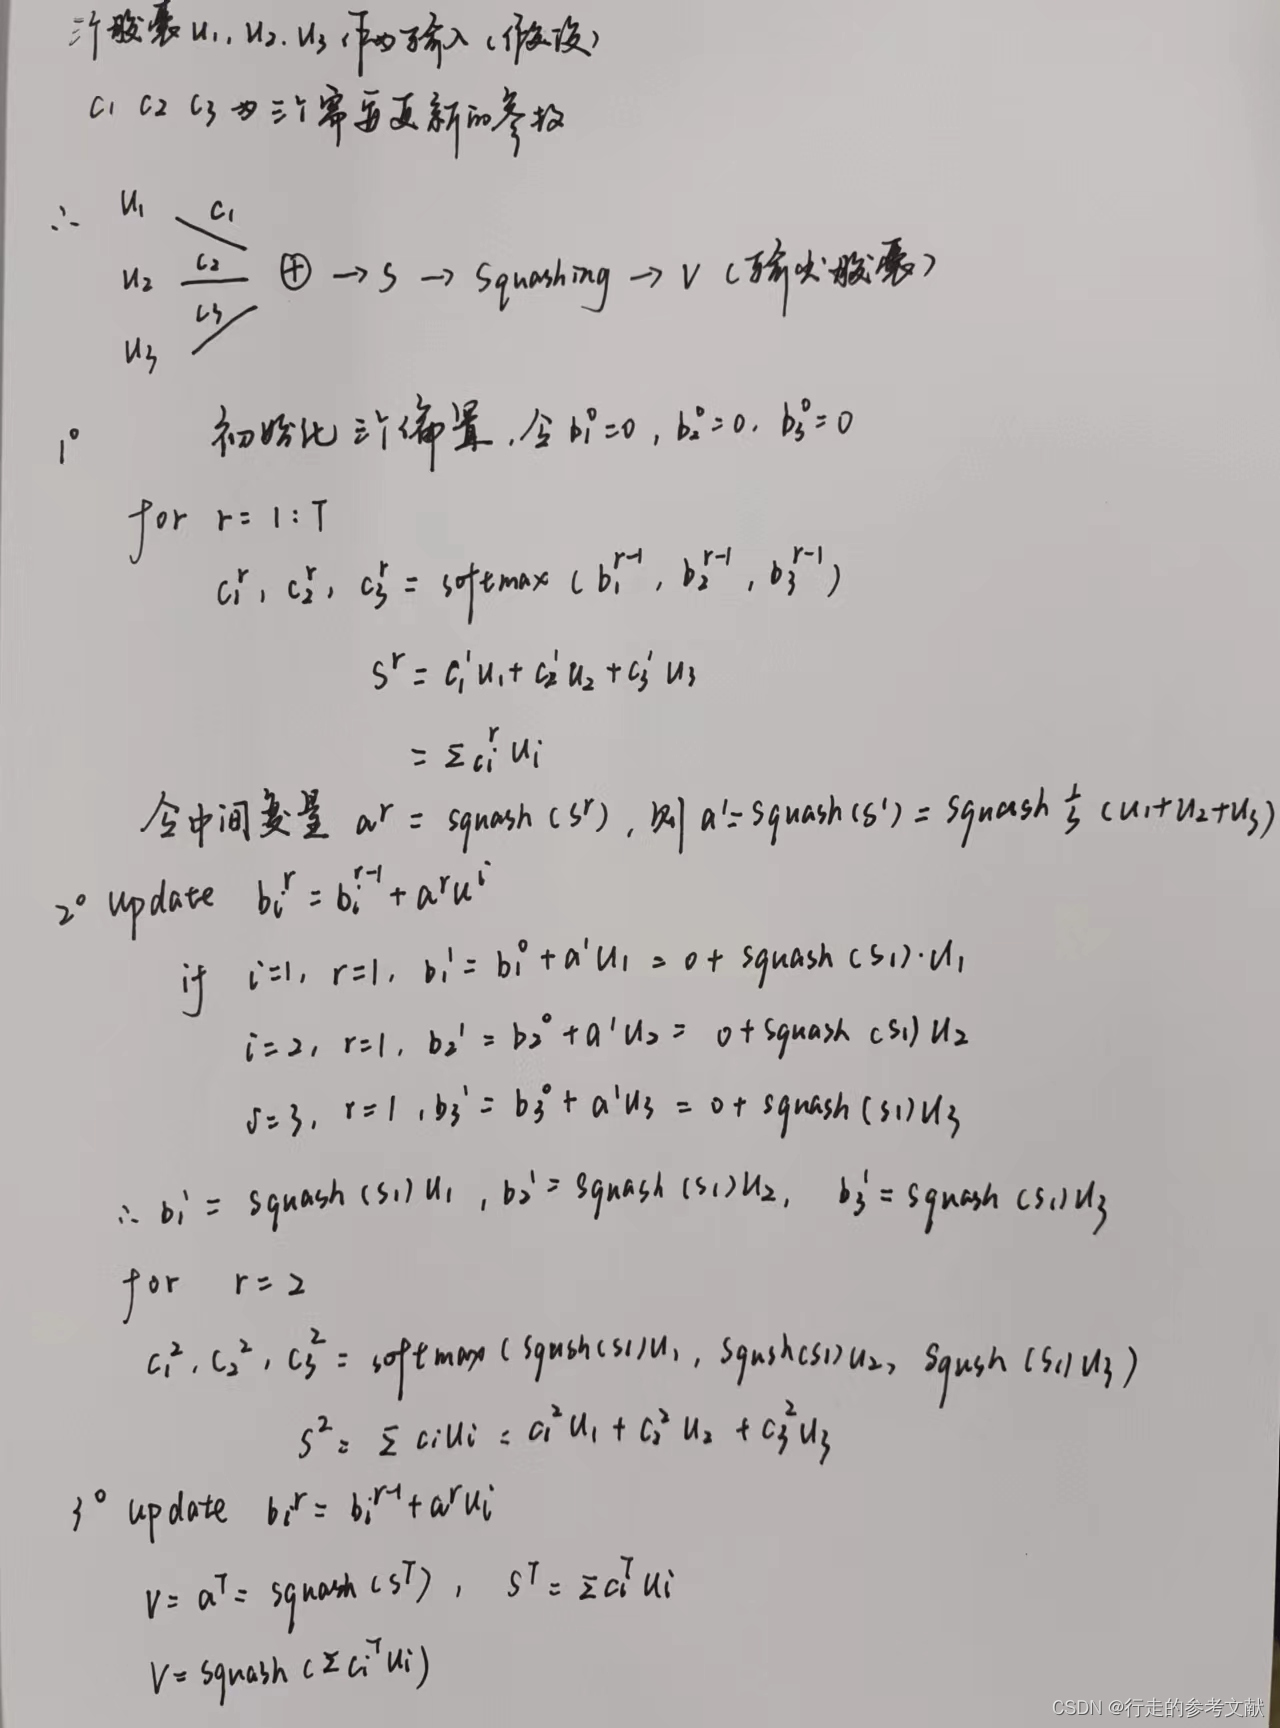 三个胶囊 u₁, u₂, u₃ 作为输入 (假设)
c₁ c₂ c₃ 为三个需要更新的参数
∴ u₁ c₁
u₂ c₂ ⊕ → s → squashing → v (输出胶囊)
u₃ c₃
1° 初始化三个偏置, 令 b₁⁰=0, b₂⁰=0, b₃⁰=0
for r=1:T
c₁ʳ, c₂ʳ, c₃ʳ = softmax (b₁ʳ⁻¹, b₂ʳ⁻¹, b₃ʳ⁻¹)
sʳ = c₁¹u₁ + c₂¹u₂ + c₃¹u₃
= Σcᵢʳuᵢ
令中间变量 aʳ = squash (sʳ), 则 a¹ = squash(s¹) = squash ⅓ (u₁+u₂+u₃)
2° update bᵢʳ = bᵢʳ⁻¹ + aʳuⁱ
if i=1, r=1, b₁¹ = b₁⁰ + a¹u₁ = 0 + squash (s₁)·u₁
i=2, r=1, b₂¹ = b₂⁰ + a¹u₂ = 0 + squash (s₁) u₂
i=3, r=1, b₃¹ = b₃⁰ + a¹u₃ = 0 + squash (s₁) u₃
∴ b₁¹ = squash (s₁) u₁, b₂¹ = squash (s₁) u₂, b₃¹ = squash (s₁) u₃
for r=2
c₁², c₂², c₃² = softmax (sqush(s₁)u₁, sqush(s₁)u₂, sqush (s₁)u₃)
s² = Σcᵢuᵢ = c₁²u₁ + c₂²u₂ + c₃²u₃
3° update bᵢʳ = bᵢʳ⁻¹ + aʳuᵢ
v = aᵀ = squash (sᵀ), sᵀ = Σcᵢᵀuᵢ
v = squash (Σcᵢᵀuᵢ)
CSDN @行走的参考文献